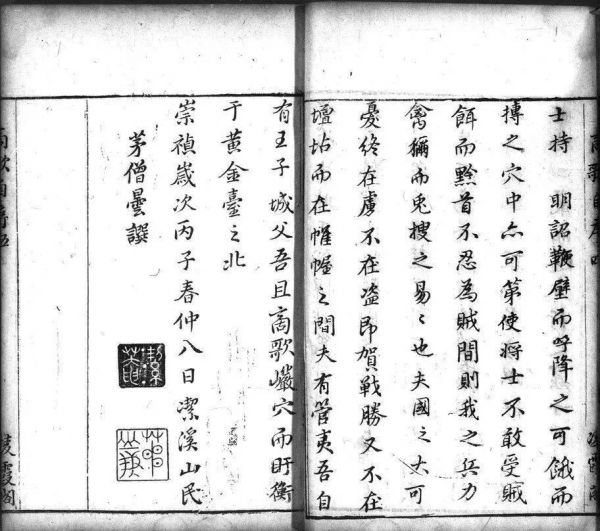 士持 明詔鞭壁而呼降之可餓而
摶之穴中亦可第使將士不敢受賊
餌而黔首不忍為賊間則我之兵力
禽獮而兎搜之易〻也夫國之大可
憂終在虜不在盗即賀戰勝又不在
壇坫而在帷幄之間夫有管夷吾自
有王子城父吾且高歌巖穴而盱衡
于黃金臺之北
崇禎歲次丙子春仲八日潔溪山民
茅僧曇譔
凌霞閣